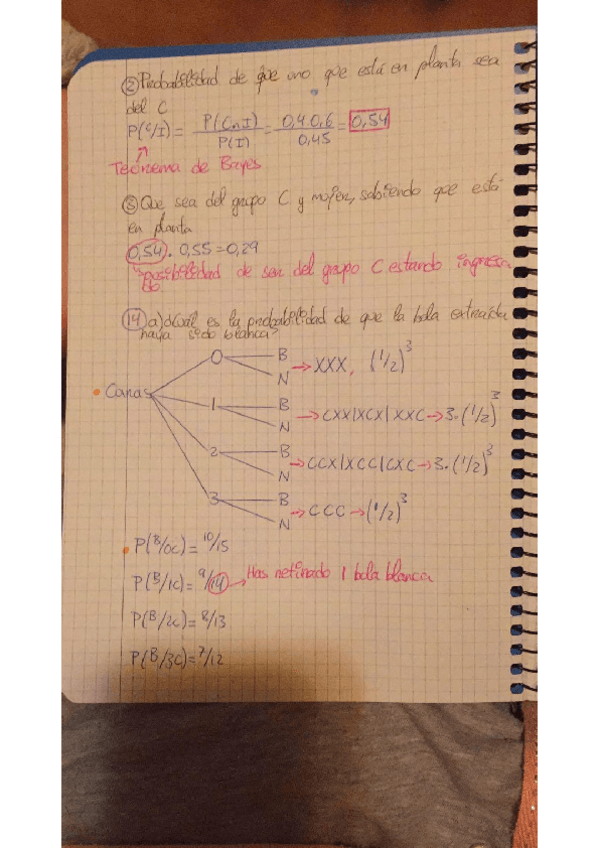 ② Probabilidad de que uno que está en planta sea
del C
P(C/I) = P(C∩I) / P(I) = 0,4.0,6 / 0,45 = 0,54
Teorema de Bayes
③ Que sea del grupo C y mujer, sabiendo que está
en planta
0,54 . 0,55 = 0,29
posibilidad de ser del grupo C estando ingresa
do
14 a) ¿Cuál es la probabilidad de que la bola extraída
haya sido blanca?
0 B
N → XXX, (1/2)^3
• Caras
1 B
N → CXX|XCX|XXC → 3·(1/2)^3
2 B
N → CCX|XCC|CXC → 3·(1/2)^3
3 B
N → CCC → (1/2)^3
• P(B/0C) = 10/15
P(B/1C) = 9/14 → Has retirado 1 bola blanca
P(B/2C) = 8/13
P(B/3C) = 7/12